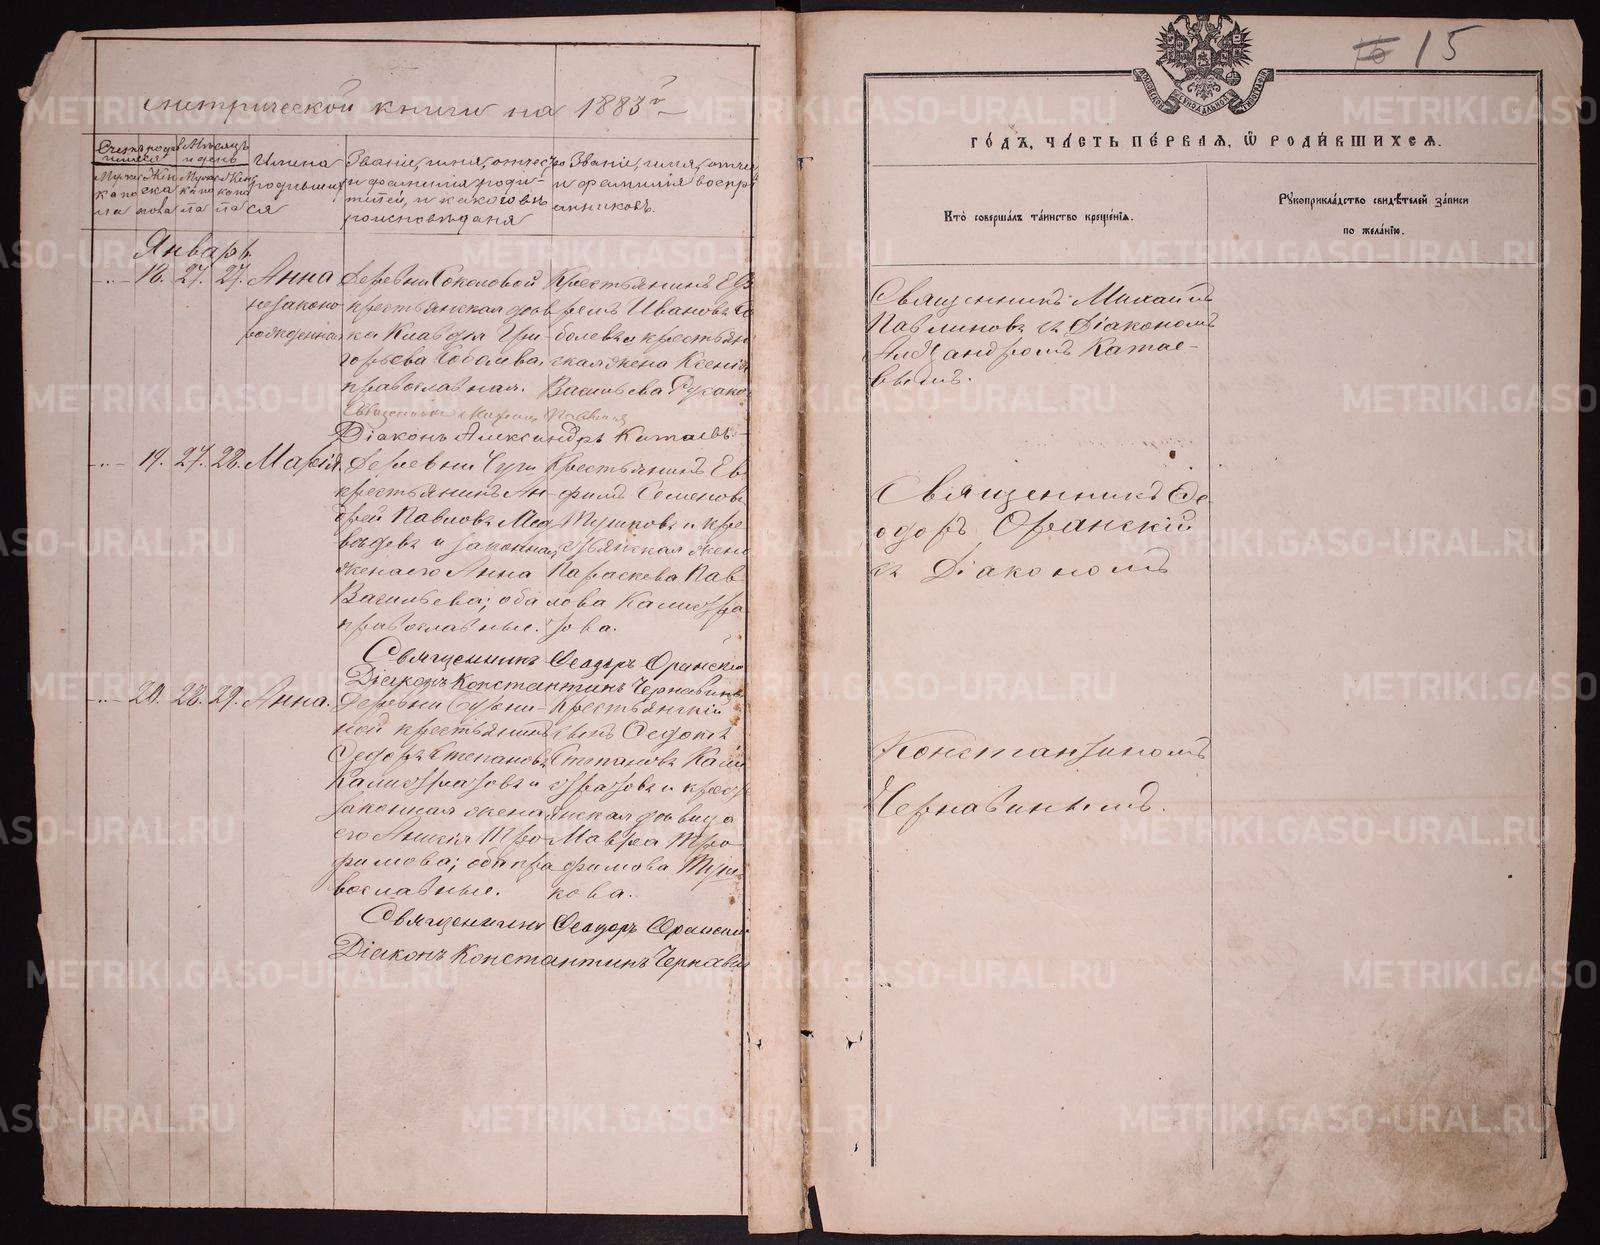 метрической книги на 1883 г.
Счетъ родившихся
Мѣсяцъ и день
Мужеска пола
Женска пола
Имена родившихся
Званіе, имя, отчество и фамилія родителей, и какого вѣроисповѣданя
Званіе, имя, отчес и фамилія воспріемниковъ.
Январь.
18. 27. 27. Анна незаконорожденная
Деревни Соколовой
крестьянская дѣв
ка Клавдія Гри-
горьева Соболева,
православная.
Крестьянинъ Еф
ремъ Ивановъ Со
болевъ и крестьян
ская жена Ксенія
Васильева
Діаконъ Александръ Катаевъ.
19. 27. 28. Марія.
Деревни
крестьянинъ Ан-
дрей Павловъ Мед
вѣдевъ и законная
жена его Анна
Васильева; оба
православные.
Крестьянинъ Ев
фимъ Семеновъ
Тушковъ и кре
стьянская жена
Параскева Пав
лова Калистра
това.
Священникъ Ѳеодоръ Оранскій
Діаконъ Константинъ Чернавинъ
20. 28. 29. Анна.
Деревни
ной крестьянинъ
Ѳедоръ Степановъ
Калистратовъ и
законная жена
его Анисія Тро
фимова; оба пра
вославные.
Крестьянскій
сынъ Ѳедотъ
Степановъ Кали
стратовъ и крест
янская дѣвица
Мавра Тро-
фимова Туш
кова.
Священникъ Ѳеодоръ Оранскій
Діаконъ Константинъ Чернавин
15
го́дъ, часть пе́рвая, ѡ҆ роди́вшихся.
Кто̀ соверша́лъ та́инство креще́нія.
Рукоприкла́дство свидѣ́телей за́писи
по жела́нію.
Священникъ Михаилъ
Павлиновъ съ Діакономъ
Александромъ Катае-
вымъ.
Священникъ Ѳе
одоръ Оранскій
съ Діакономъ
Константиномъ
Чернавинымъ.
METRIKI.GASO-URAL.RU